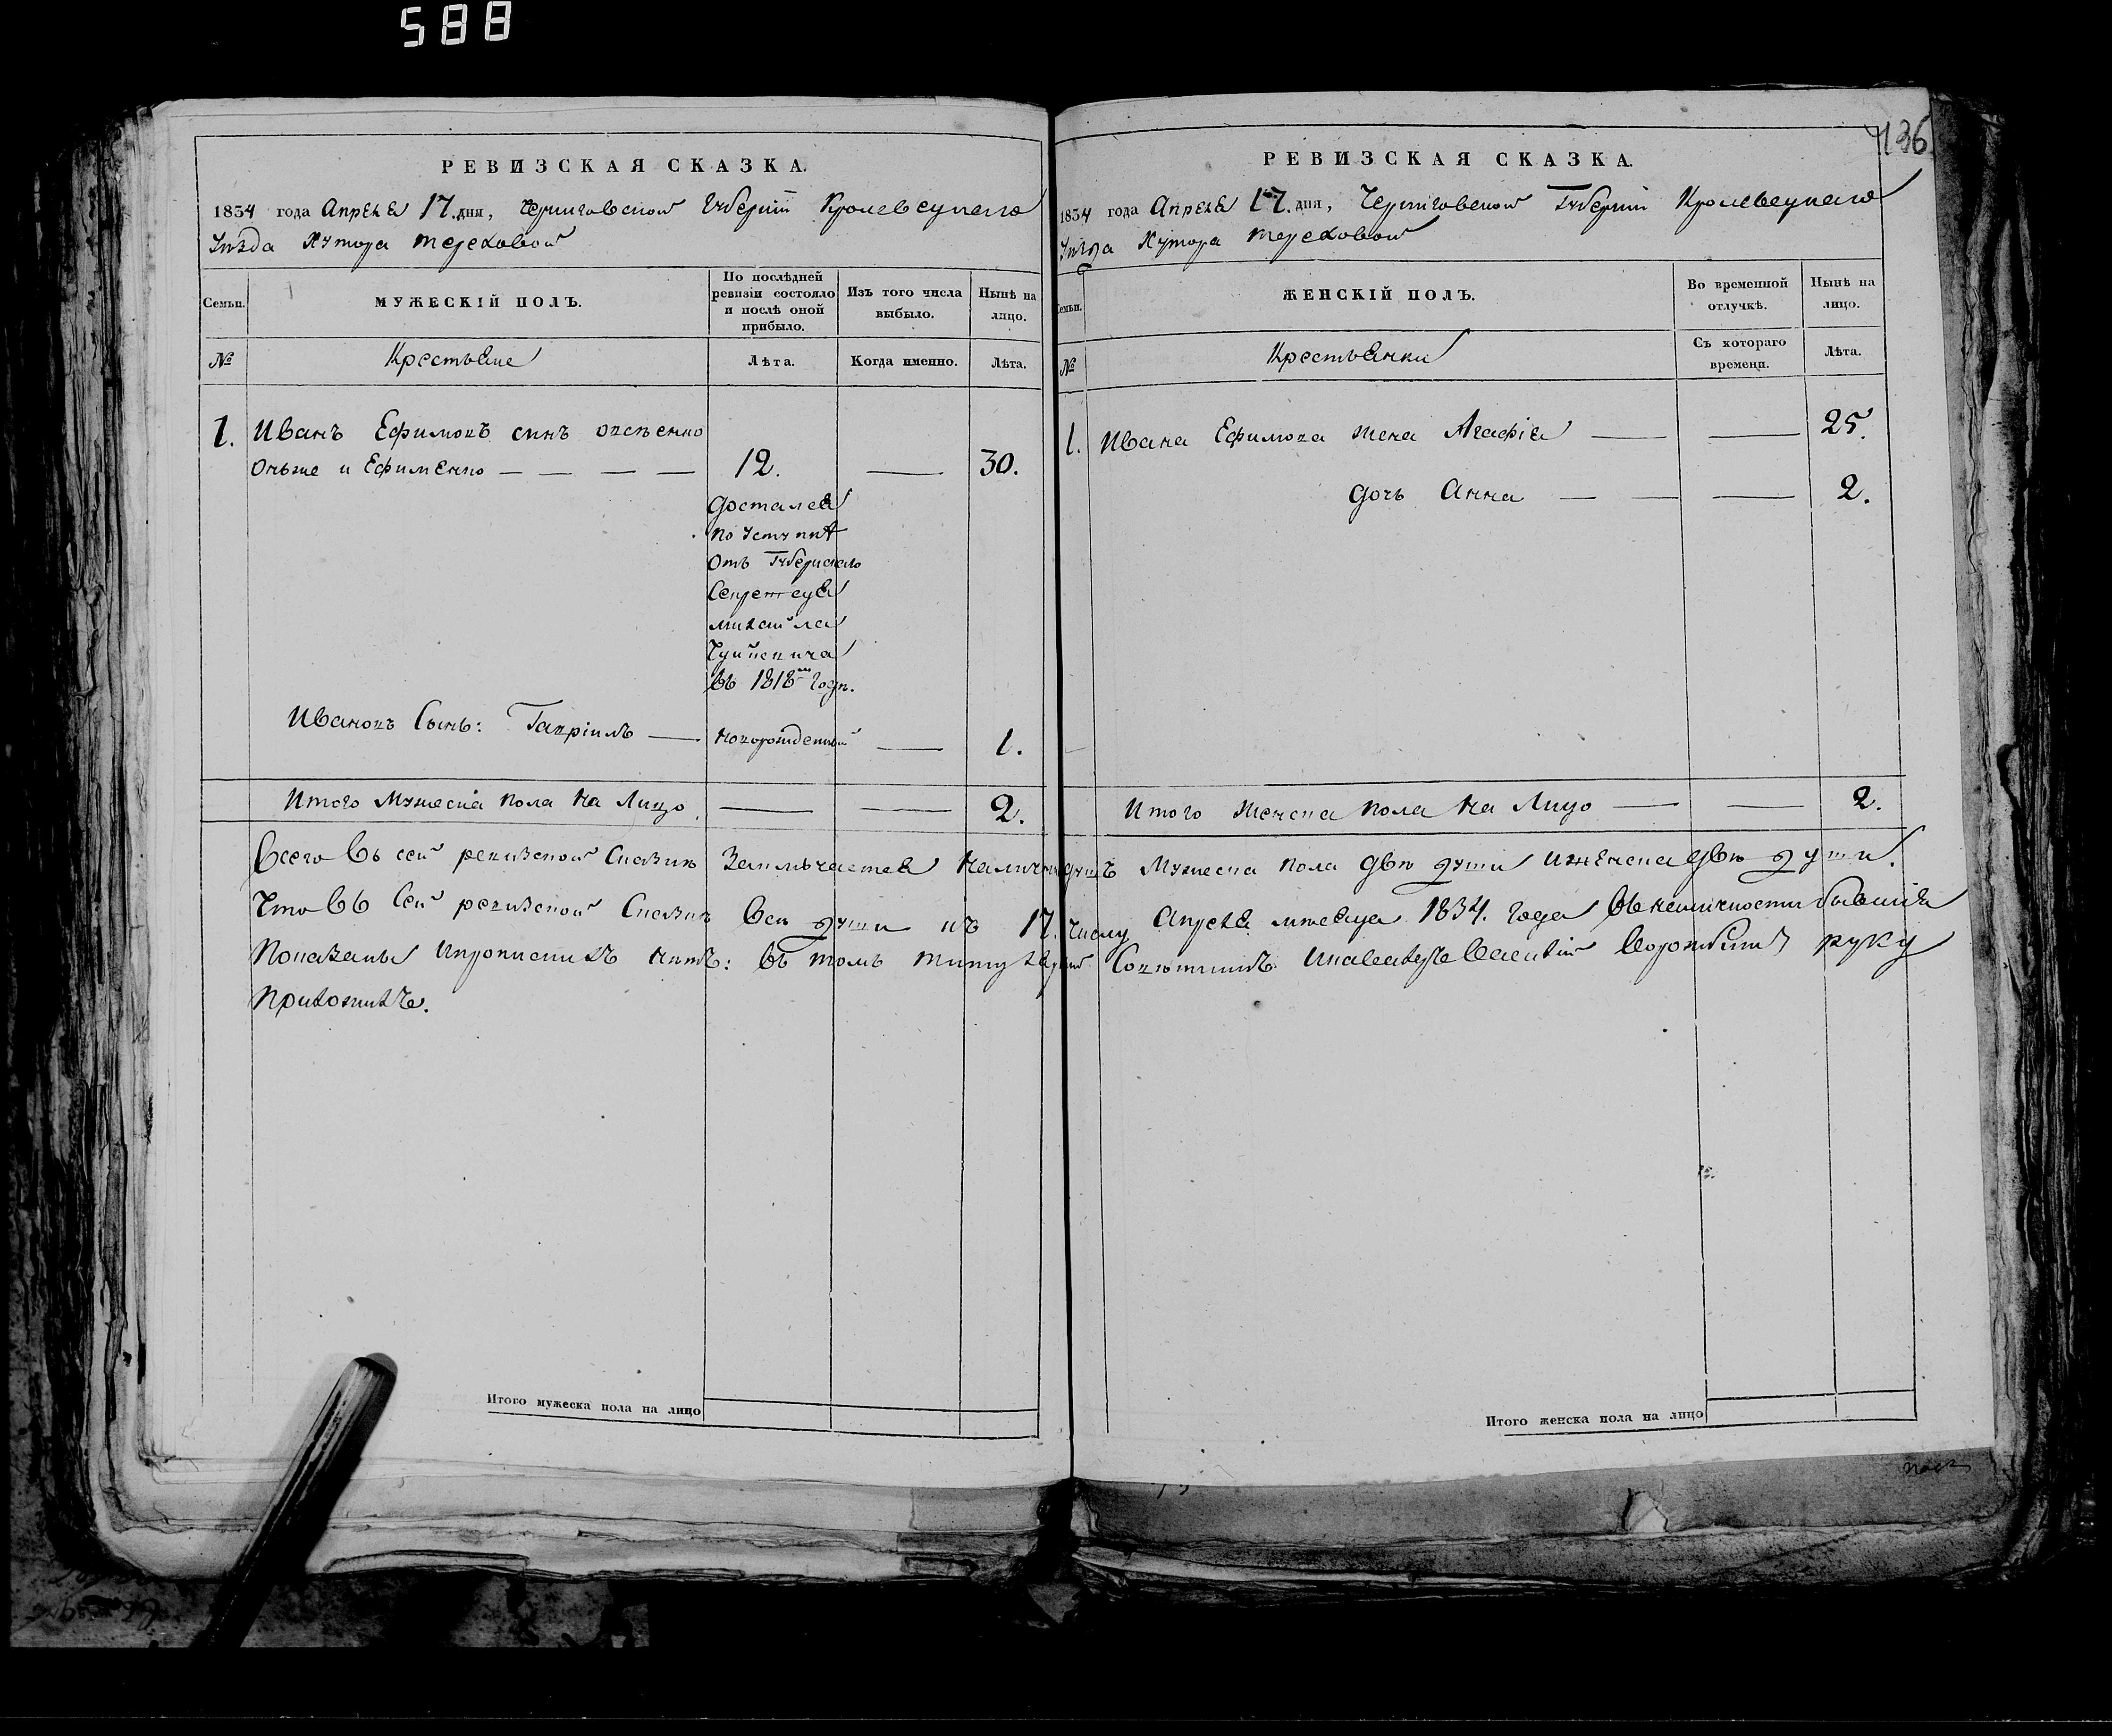 588
136
РЕВИЗСКАЯ СКАЗКА.
1834 года Апреля 17. дня, Черниговской Губернии Кролевецкаго
Уѣзда Хутора Тереховой
Семьи.
МУЖЕСКІЙ ПОЛЪ.
По послѣдней ревизіи состояло и послѣ оной прибыло.
Изъ того числа выбыло.
Нынѣ на лицо.
№
Крестьяне
Лѣта.
Когда именно.
Лѣта.
1. Иванъ Ефимовъ синъ
онъже и Ефименко — — — — 12. — 30.
достался
по уступкѣ
отъ Губернскаго
Секретаря
Михайла
въ 1818м годѣ.
Ивановъ Сынъ: Гавріилъ — новорожденный — 1.
Итого Мужеска пола на Лицо — — 2.
РЕВИЗСКАЯ СКАЗКА.
1834 года Апреля 17. дня, Черниговской Губернии Кролевецкаго
Уѣзда Хутора Тереховой
Семьи.
ЖЕНСКІЙ ПОЛЪ.
Во временной отлучкѣ.
Нынѣ на лицо.
№
Крестьянки
Съ котораго времени.
Лѣта.
1. Ивана Ефимова жена Агафія — — 25.
дочь Анна — — — 2.
Итого женска пола на Лицо — — 2.
Всего въ сей ревизской Сказкѣ Заключается наличныхъ душъ Мужеска пола двѣ души и женска двѣ души.
Что въ Сей ревизской Сказкѣ Всѣ души къ 17. числу Апреля мѣсяца 1834. Года въ наличности бывшія
Показаны и прописныхъ нѣтъ: въ томъ титулярный Совѣтникъ и кавалеръ Василій руку
приложилъ.
Итого мужеска пола на лицо
Итого женска пола на лицо